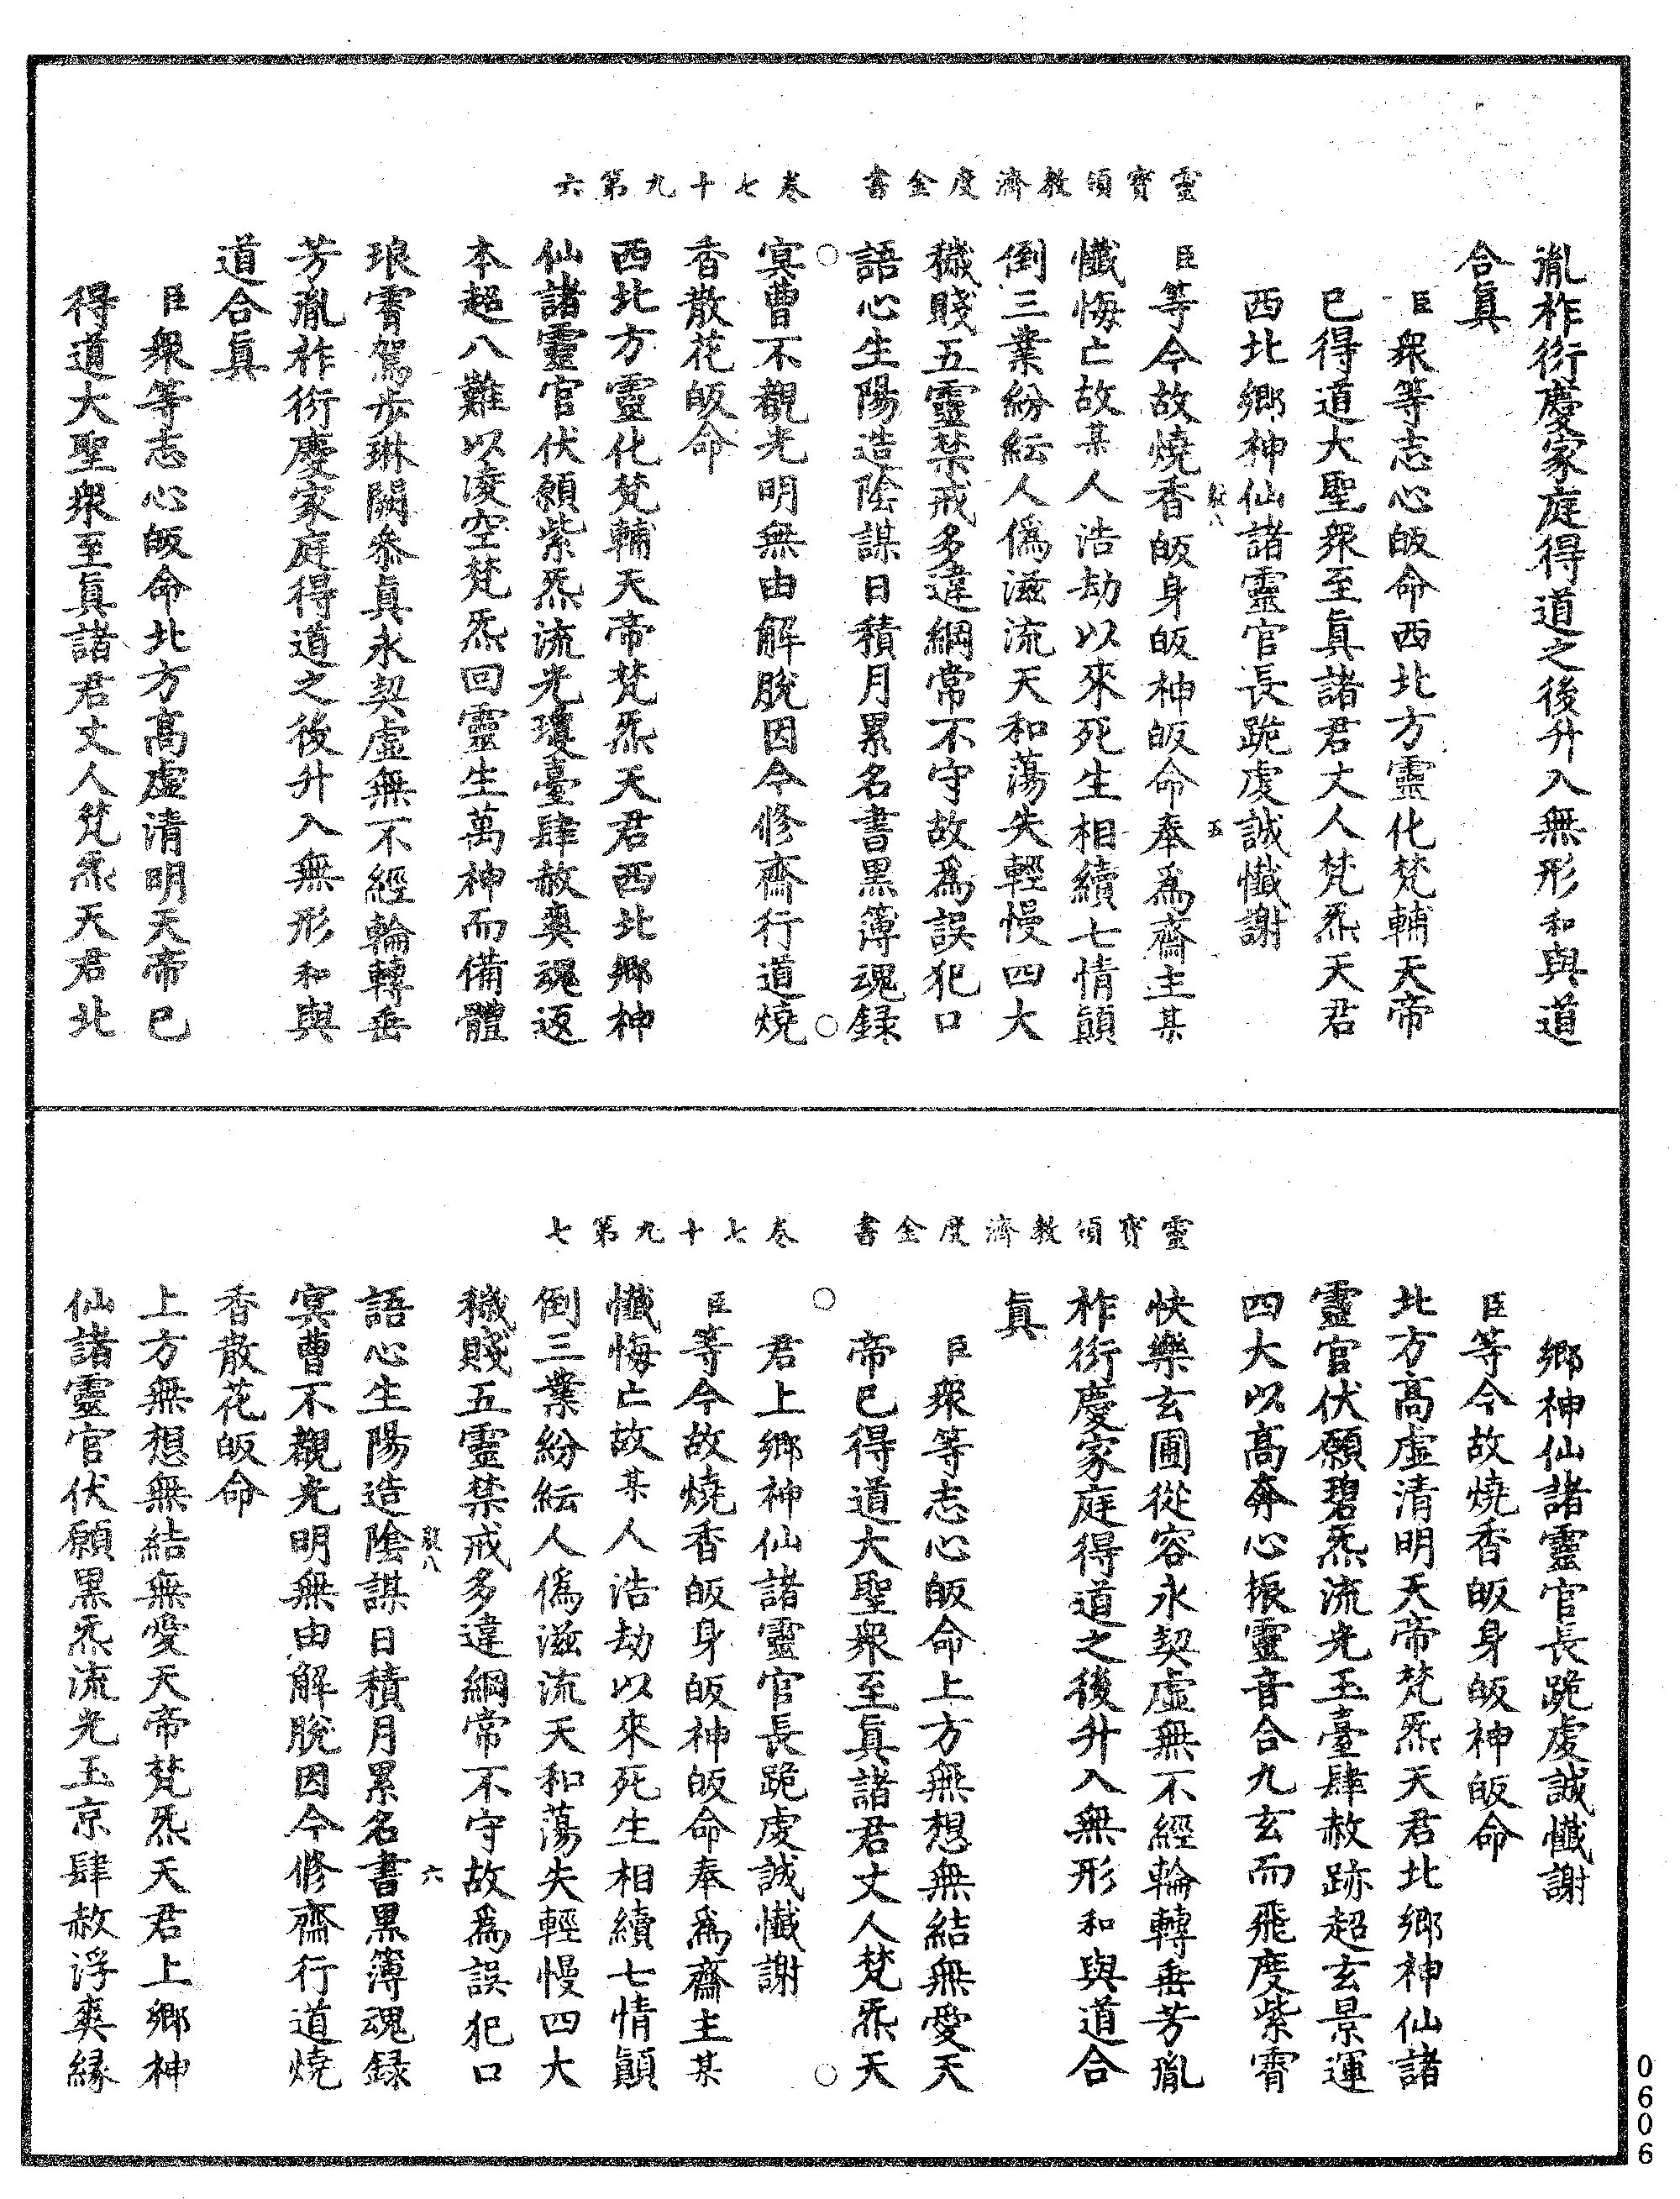 靈寶領教濟度金書　卷七十九第六
胤祚衍慶家庭得道之後升入無形和與道
合眞
臣衆等志心皈命西北方靈化梵輔天帝
已得道大聖衆至眞諸君丈人梵炁天君
西北鄉神仙諸靈官長跪虔誠懺謝
臣等今故燒香皈身皈神皈命奉爲齋主某
懺悔亡故某人浩劫以來死生相續七情顚
倒三業紛紜人僞滋流天和蕩失輕慢四大
穢賤五靈禁戒多違綱常不守故爲誤犯口
語心生陽造陰謀日積月累名書黒簿魂録
冥曹不覩光明無由解脫因今修齋行道燒
香散花皈命
西北方靈化梵輔天帝梵炁天君西北鄉神
仙諸靈官伏願紫炁流光瓊臺肆赦爽魂返
本超八難以凌空梵炁回靈生萬神而備體
琅霄駕步琳闕叅眞永契虛無不經輪轉垂
芳胤祚衍慶家庭得道之後升入無形和與
道合眞
臣衆等志心皈命北方高虛清明天帝已
得道大聖衆至眞諸君丈人梵炁天君北
五
靈寶領教濟度金書　卷七十九第七
鄉神仙諸靈官長跪虔誠懺謝
臣等今故燒香皈身皈神皈命
北方高虛清明天帝梵炁天君北鄉神仙諸
靈官伏願碧炁流光玉臺肆赦跡超玄景運
四大以高奔心振靈音合九玄而飛度紫霄
快樂玄圃從容永契虛無不經輪轉垂芳胤
祚衍慶家庭得道之後升入無形和與道合
眞
臣衆等志心皈命上方無想無結無愛天
帝已得道大聖衆至眞諸君丈人梵炁天
君上鄉神仙諸靈官長跪虔誠懺謝
臣等今故燒香皈身皈神皈命奉爲齋主某
懺悔亡故某人浩劫以來死生相續七情顚
倒三業紛紜人僞滋流天和蕩失輕慢四大
穢賤五靈禁戒多違綱常不守故爲誤犯口
語心生陽造陰謀日積月累名書黒簿魂録
冥曹不覩光明無由解脫因今修齋行道燒
香散花皈命
上方無想無結無愛天帝梵炁天君上鄉神
仙諸靈官伏願黒炁流光玉京肆赦浮爽縁
六
0606